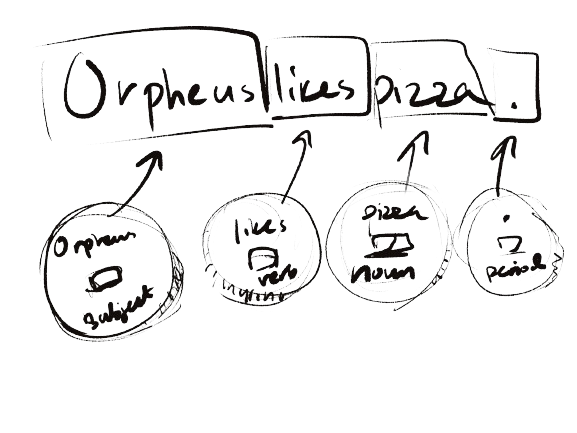 Orpheus likes pizza .
Orpheus
subject
likes
verb
pizza
noun
.
period